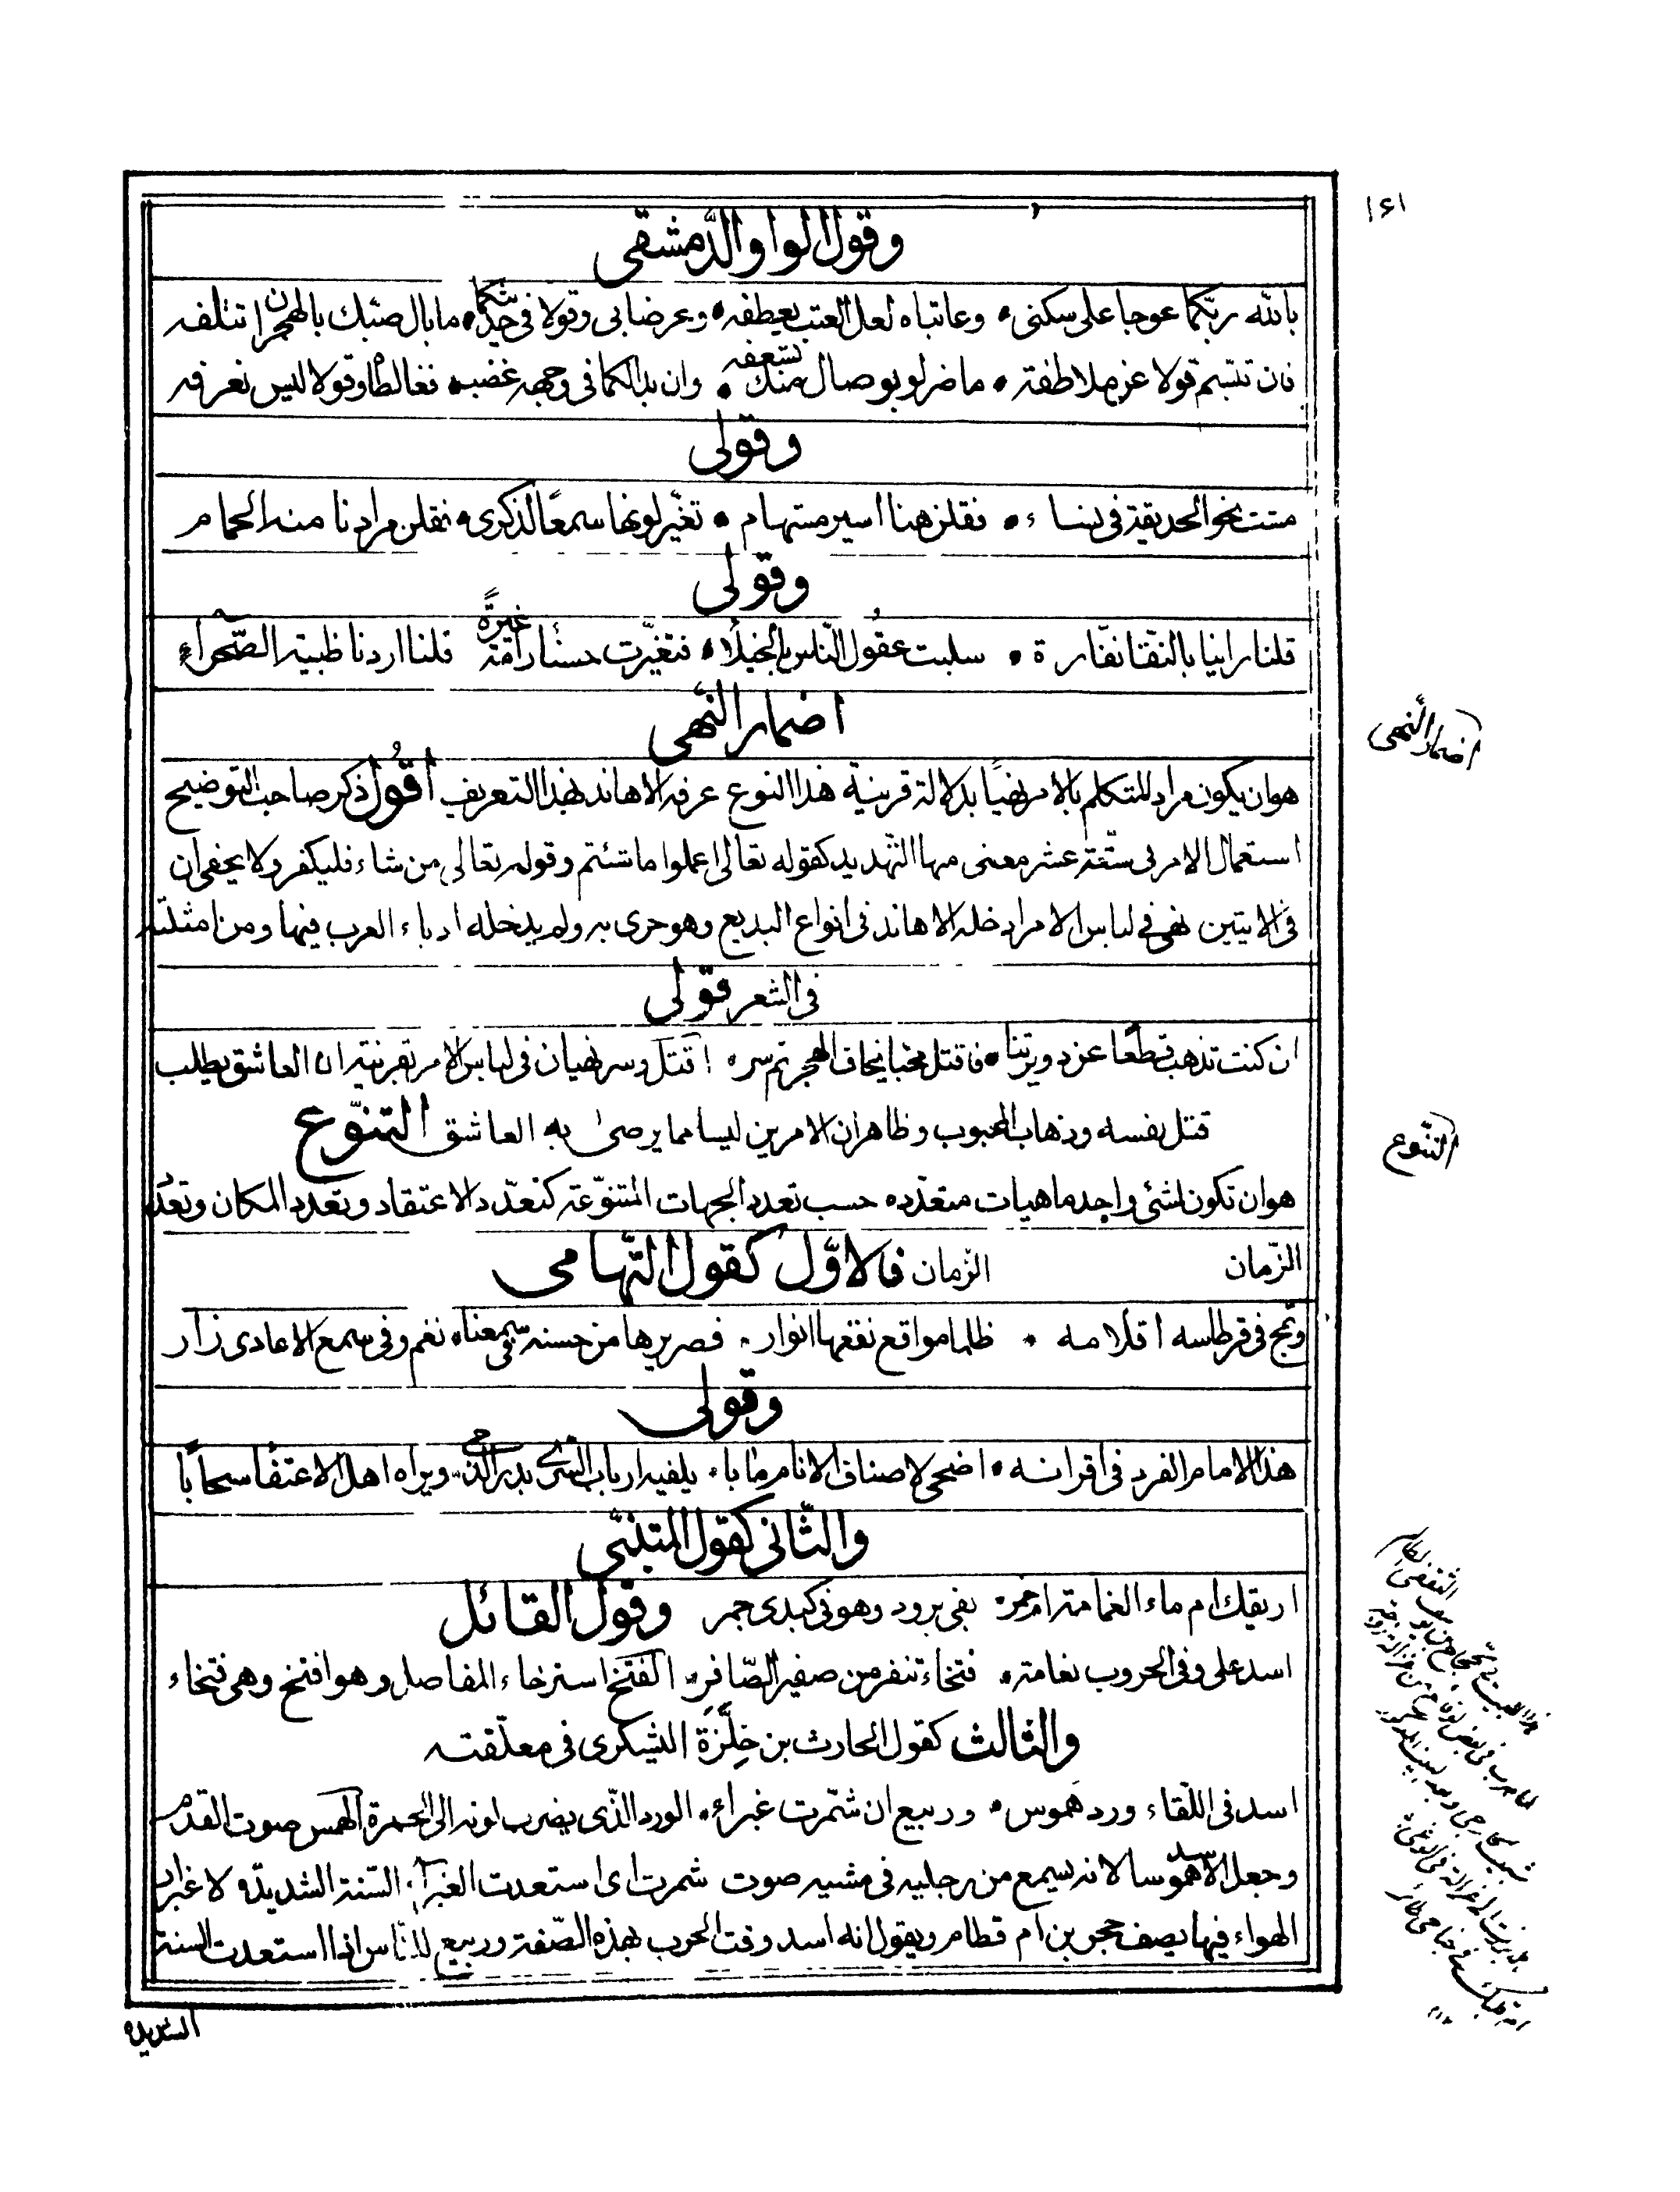 ١٤١
وقول الواو الدّمشقى
بالله ربّكما عوجا على سكنى • وعاتباه لعل العتب يعطفه • وعرضا بى وقولا فى حديثكما • ما بال صبّك بالهجران تتلفه
فان تبسّم قولا عن ملاطفة • ما ضر لو بوصال منك تسعفه • وان بدا لكما فى وجهه غضب • فغالطا وقولا ليس نعرفه
وقولى
مشت نحو الحديقة فى نساء • فقلن هنا اسير مستهام • تغيّر لونها سمعًا لذكرى • فقلن مرادنا منه الحمام
وقولى
قلنا راينا بالنقا نفّارة • سلبت عقُول النّاس بالخيلاء • فتغيّرت حسناء رامة غيرةً قلنا اردنا ظبية الصّحراء
اضمار النّهى
اضمار النّهى
هو ان يكون مراد المتكلم بالامر نهيًا بدلالة قرينية هذا النوع عرفه الاهاند بهذا التعريف اقُول ذكر صاحب التوضيح
استعمال الامر فى ستّة عشر معنى منها التهديد كقوله تعالى اعملوا ما شئتم وقوله تعالى من شاء فليكفر ولا يخفى ان
فى الايتين نهى فى لباس الامر ادخله الاهاند فى انواع البديع وهو حرى به ولم يدخله ادباء العرب فيها ومن امثلته
فى الشعر قولى
ان كنت تذهب قطعًا عن دويرتنا • فاقتل محبا يخاف الهجر ثم سر • اقتل وسر نهيان فى لباس الامر بقرينية ان العاشق يطلب
قتل نفسه وذهاب المحبوب وظاهر ان الامرين ليسا مما يرضى به العاشق التنوّع
التنّوع
هو ان تكون لشئ واحد ماهيات متعدّده حسب تعدد الجهات المتنوّعة كتعدّد الاعتقاد وتعدد المكان وتعدد
الزّمان الزمان فالاوّل كقول التّهامى
وتمج فى قرطاسه اقلامه • ظلما مواقع نقعها انوار • فصريرها من حسنه فى سمعنا • نغم وفى سمع الاعادى زار
وقولى
هذا الامام الفرد فى اقرانه • اضحى لاصناف الانام مابا • يلفيه ارباب السرى بدر الدجى • ويراه اهل الاعتفا سحابًا
والثّانى كقول المتنبّى
اريقك ام ماء الغمامة ام خمر • بفى برود وهو فى كبدى جمر وقول القائل
اسد على وفى الحروب نعامة • فتخاء تنفر من صفير الصّافر • الفتخ استرخاء المفاصل وهو افتخ وهى فتخاء
والثالث كقول الحارث بن حِلّزَة اليشكرى فى معلّقته
اسد فى اللّقاء ورد هموس • وربيع ان شمّرت غبراء • الورد الّذى يضرب لونه الى الحمرة الهمس صوت القدم
وجعل الاسد هموسا لانه يسمع من رجليه فى مشيه صوت شمرت اى استعدت الغبراء السّنة الشديدّه لاغبرار
الهواء فيها يصف حجر بن ام قطام ويقول انه اسد وقت الحرب بهذه الصّفة وربيع للنّاس اذا استعدت السنة
الشديده